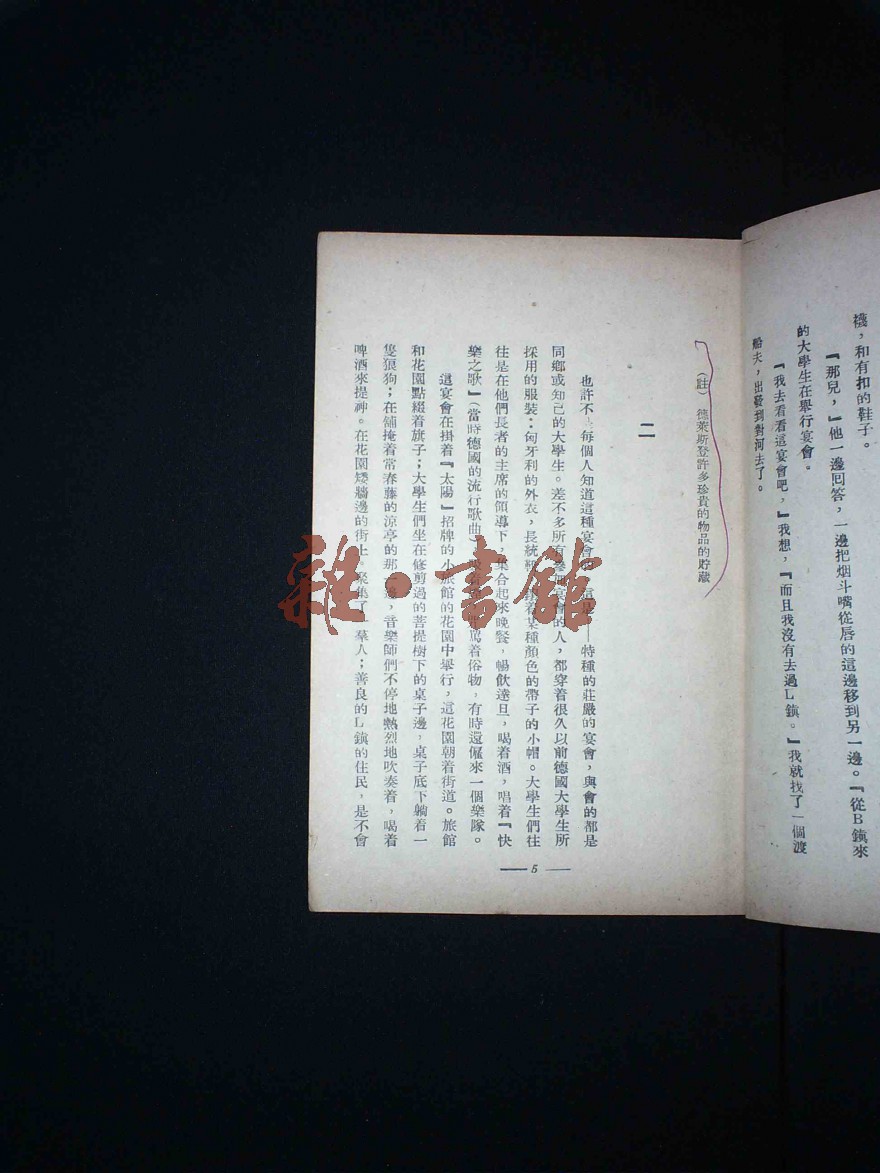 襪，和有扣的鞋子。
『那兒，』他一邊回答，一邊把烟斗嘴從唇的這邊移到另一邊。『從B鎮來
的大學生在舉行宴會。
『我去看看這宴會吧，』我想，『而且我沒有去過L鎮。』我就找了一個渡
船夫，出發到對河去了。
（註）德萊斯登許多珍貴的物品的貯藏
二
也許不是每個人知道這種宴會 這是——特種的莊嚴的宴會，與會的都是
同鄉或知己的大學生。差不多所有參加宴會的人，都穿着很久以前德國大學生所
採用的服裝：匈牙利的外衣，長統 着某種顏色的帶子的小帽。大學生們往
往是在他們長者的主席的領導下，集合起來晚餐，暢飲達旦，喝着酒，唱着『快
樂之歌』（當時德國的流行歌曲） 咒罵着俗物，有時還僱來一個樂隊。
這宴會在掛着『太陽』招牌的小旅館的花園中舉行，這花園朝着街道。旅館
和花園點綴着旗子；大學生們坐在修剪過的菩提樹下的桌子邊，桌子底下躺着一
隻狼狗；在舖掩着常春藤的涼亭的那 ，音樂師們不停地熱烈地吹奏着，喝着
啤酒來提神。在花園矮牆邊的街上，聚集了一羣人；善良的L鎮的住民，是不會
— 5 —
雜·書館